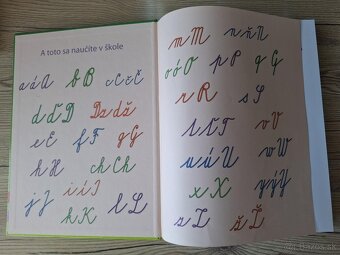 A toto sa naučíte v škole
a á A b B c C č Č
d ď Ď Dz dž
e E f F g G
h H ch Ch
j J i í I
k K l L
m M n ň N
o ó O p P q Q
r R s S
t ť T v V
u ú U w W
x X y ý Y
z Z ž Ž